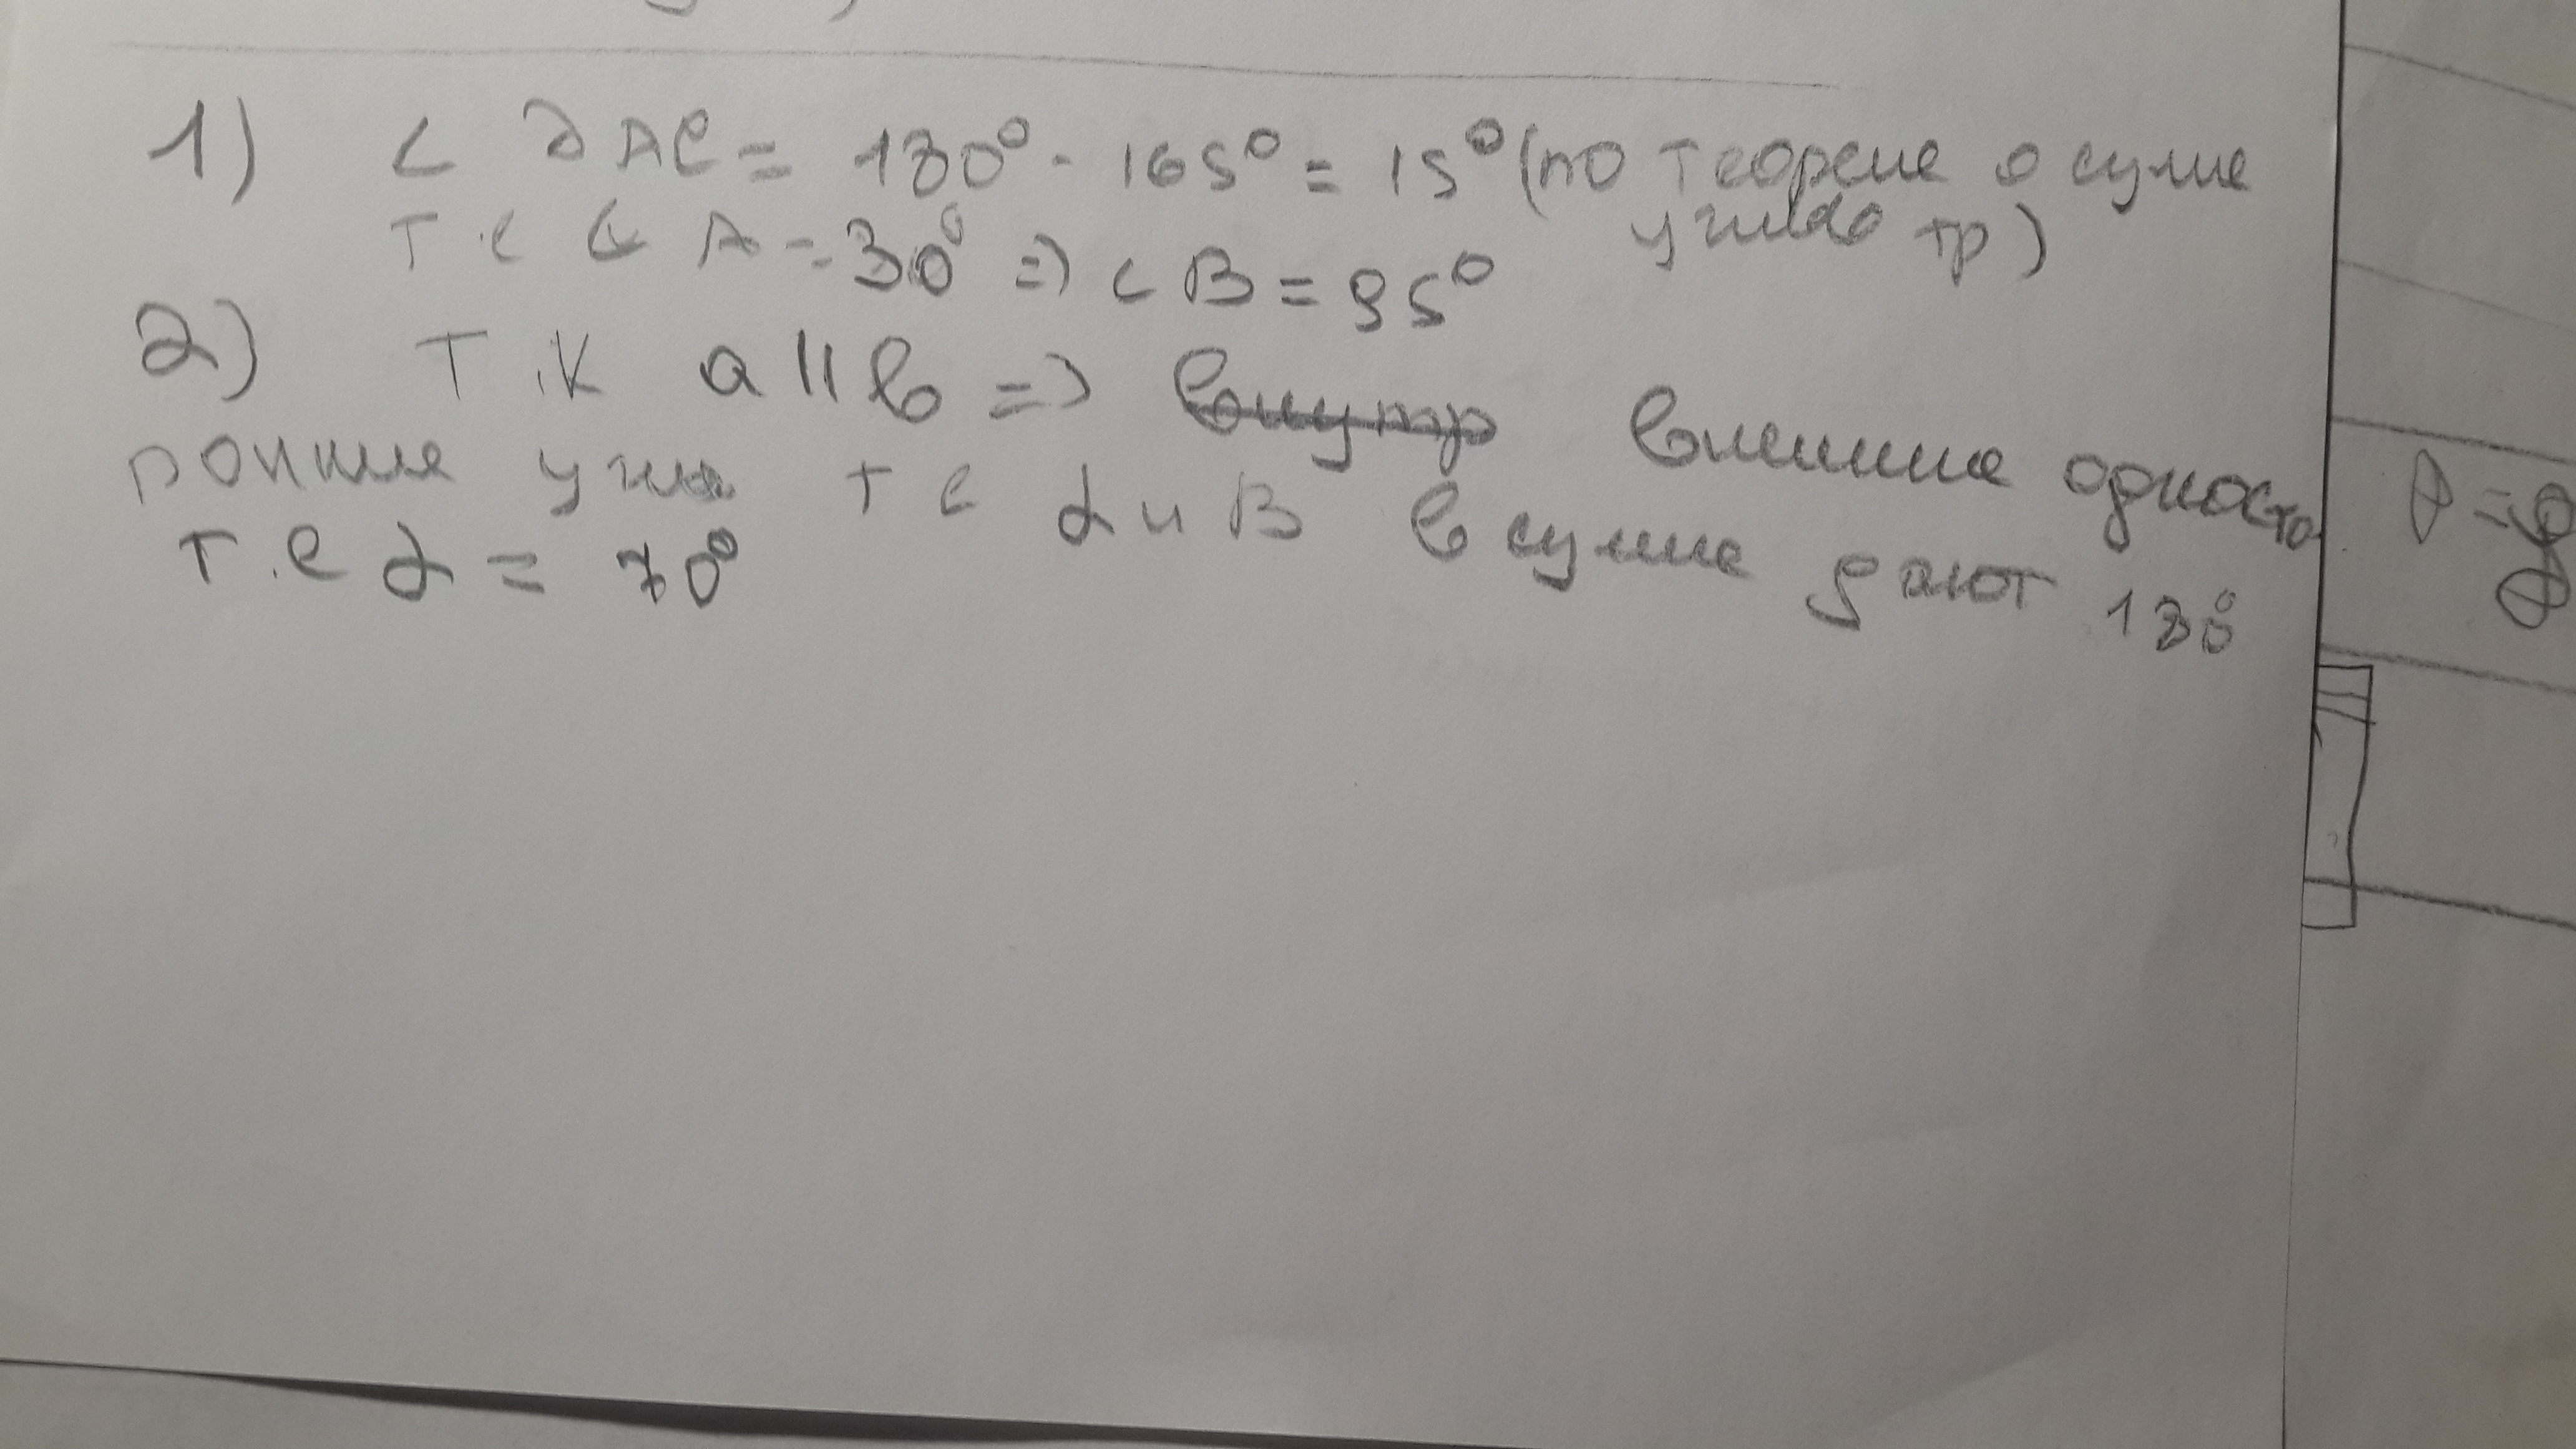 1) ∠ DAC = 180° - 165° = 15° (по теореме о сумме
углов тр)
т.е ∠ A = 30° => ∠ B = 95°
2) т.к a || b => внутр внешние односто
ронние углы т е α и B в сумме дают 180°
т.е α = 70°